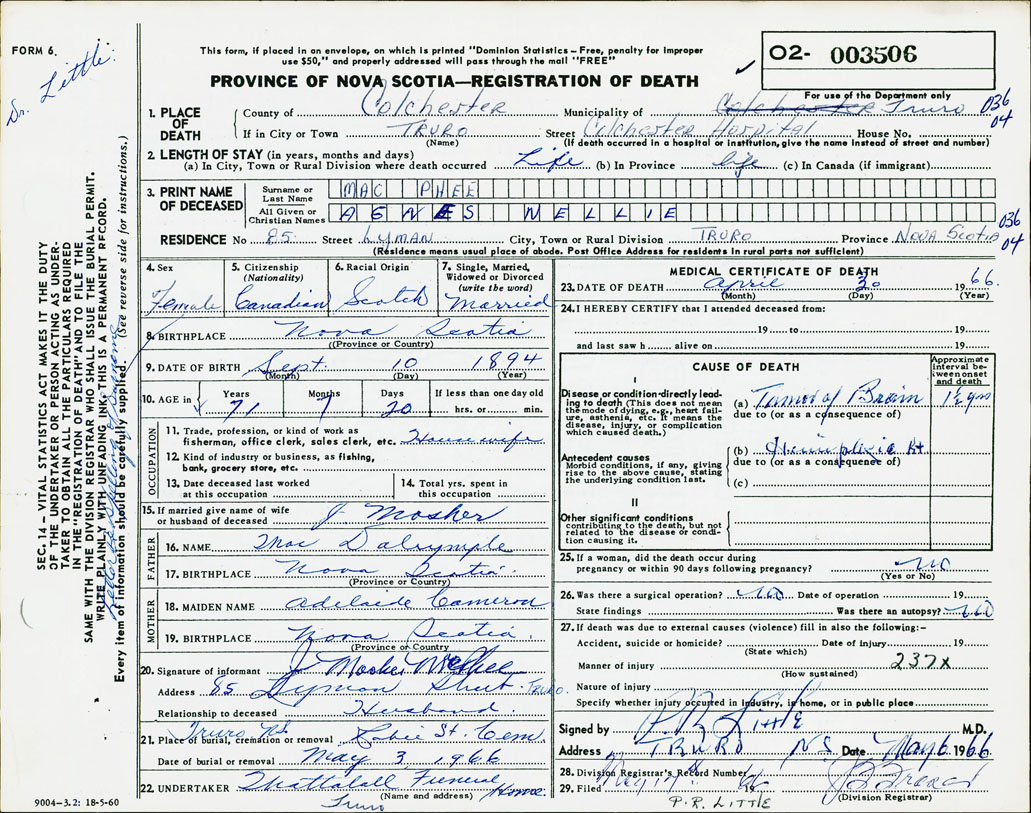 FORM 6.
Dr. Little:
This form, if placed in an envelope, on which is printed "Dominion Statistics – Free, penalty for improper
use $50," and properly addressed will pass through the mail "FREE"
PROVINCE OF NOVA SCOTIA—REGISTRATION OF DEATH
O2- 003506
For use of the Department only
1. PLACE OF DEATH County of Colchester Municipality of Colchester Truro 036
If in City or Town TRURO Street Colchester Hospital House No. 04
(Name) (If death occurred in a hospital or institution, give the name instead of street and number)
2. LENGTH OF STAY (in years, months and days)
(a) In City, Town or Rural Division where death occurred Life (b) In Province life (c) In Canada (if immigrant)
3. PRINT NAME OF DECEASED Surname or Last Name MAC PHEE
All Given or Christian Names AGNES NELLIE
RESIDENCE No 85 Street Lyman City, Town or Rural Division TRURO Province NOVA SCOTIA 036 04
(Residence means usual place of abode. Post Office Address for residents in rural parts not sufficient)
4. Sex Female
5. Citizenship (Nationality) Canadian
6. Racial Origin Scotch
7. Single, Married, Widowed or Divorced (write the word) Married
8. BIRTHPLACE Nova Scotia
(Province or Country)
9. DATE OF BIRTH Sept. 10 1894
(Month) (Day) (Year)
10. AGE in Years Months Days If less than one day old
71 7 20 hrs. or min.
OCCUPATION
11. Trade, profession, or kind of work as
fisherman, office clerk, sales clerk, etc. Housewife
12. Kind of industry or business, as fishing,
bank, grocery store, etc.
13. Date deceased last worked at this occupation
14. Total yrs. spent in this occupation
15. If married give name of wife
or husband of deceased J Mosher
FATHER
16. NAME Mac Dalrymple
17. BIRTHPLACE Nova Scotia
(Province or Country)
MOTHER
18. MAIDEN NAME Adelaide Cameron
19. BIRTHPLACE Nova Scotia
(Province or Country)
20. Signature of informant J Mosher McPhee
Address 85 Lyman Street Truro.
Relationship to deceased Husband
Truro N.S.
21. Place of burial, cremation or removal Robie St. Cem
Date of burial or removal May 3, 1966
22. UNDERTAKER Mattatall Funeral Home
(Name and address)
Truro
MEDICAL CERTIFICATE OF DEATH
23. DATE OF DEATH April 30 1966.
(Month) (Day) (Year)
24. I HEREBY CERTIFY that I attended deceased from:
19 to 19
and last saw h alive on 19
CAUSE OF DEATH
Approximate interval between onset and death
I
Disease or condition directly leading to death (This does not mean the mode of dying, e.g., heart failure, asthenia, etc. It means the disease, injury, or complication which caused death.)
(a) Tumor of Brain 1½ yrs
due to (or as a consequence of)
Antecedent causes
Morbid conditions, if any, giving rise to the above cause, stating the underlying condition last.
(b) Hemiplegia Rt
due to (or as a consequence of)
(c)
II
Other significant conditions contributing to the death, but not related to the disease or condition causing it.
25. If a woman, did the death occur during
pregnancy or within 90 days following pregnancy? no
(Yes or No)
26. Was there a surgical operation? no Date of operation 19
State findings Was there an autopsy? no
27. If death was due to external causes (violence) fill in also the following:-
Accident, suicide or homicide? Date of injury 19
(State which)
Manner of injury 237x
(How sustained)
Nature of injury
Specify whether injury occurred in industry, in home, or in public place
Signed by P R Little M.D.
Address TRURO N.S. Date May 6 1966
28. Division Registrar's Record Number
29. Filed 19
(Division Registrar)
P.R. LITTLE
SEC. 14 – VITAL STATISTICS ACT MAKES IT THE DUTY
OF THE UNDERTAKER OR PERSON ACTING AS UNDER-
TAKER TO OBTAIN ALL THE PARTICULARS REQUIRED
IN THE "REGISTRATION OF DEATH" AND TO FILE THE
SAME WITH THE DIVISION REGISTRAR WHO SHALL ISSUE THE BURIAL PERMIT.
WRITE PLAINLY WITH UNFADING INK. THIS IS A PERMANENT RECORD.
Every item of information should be carefully supplied. (See reverse side for instructions.)
9004–3.2: 18-5-60